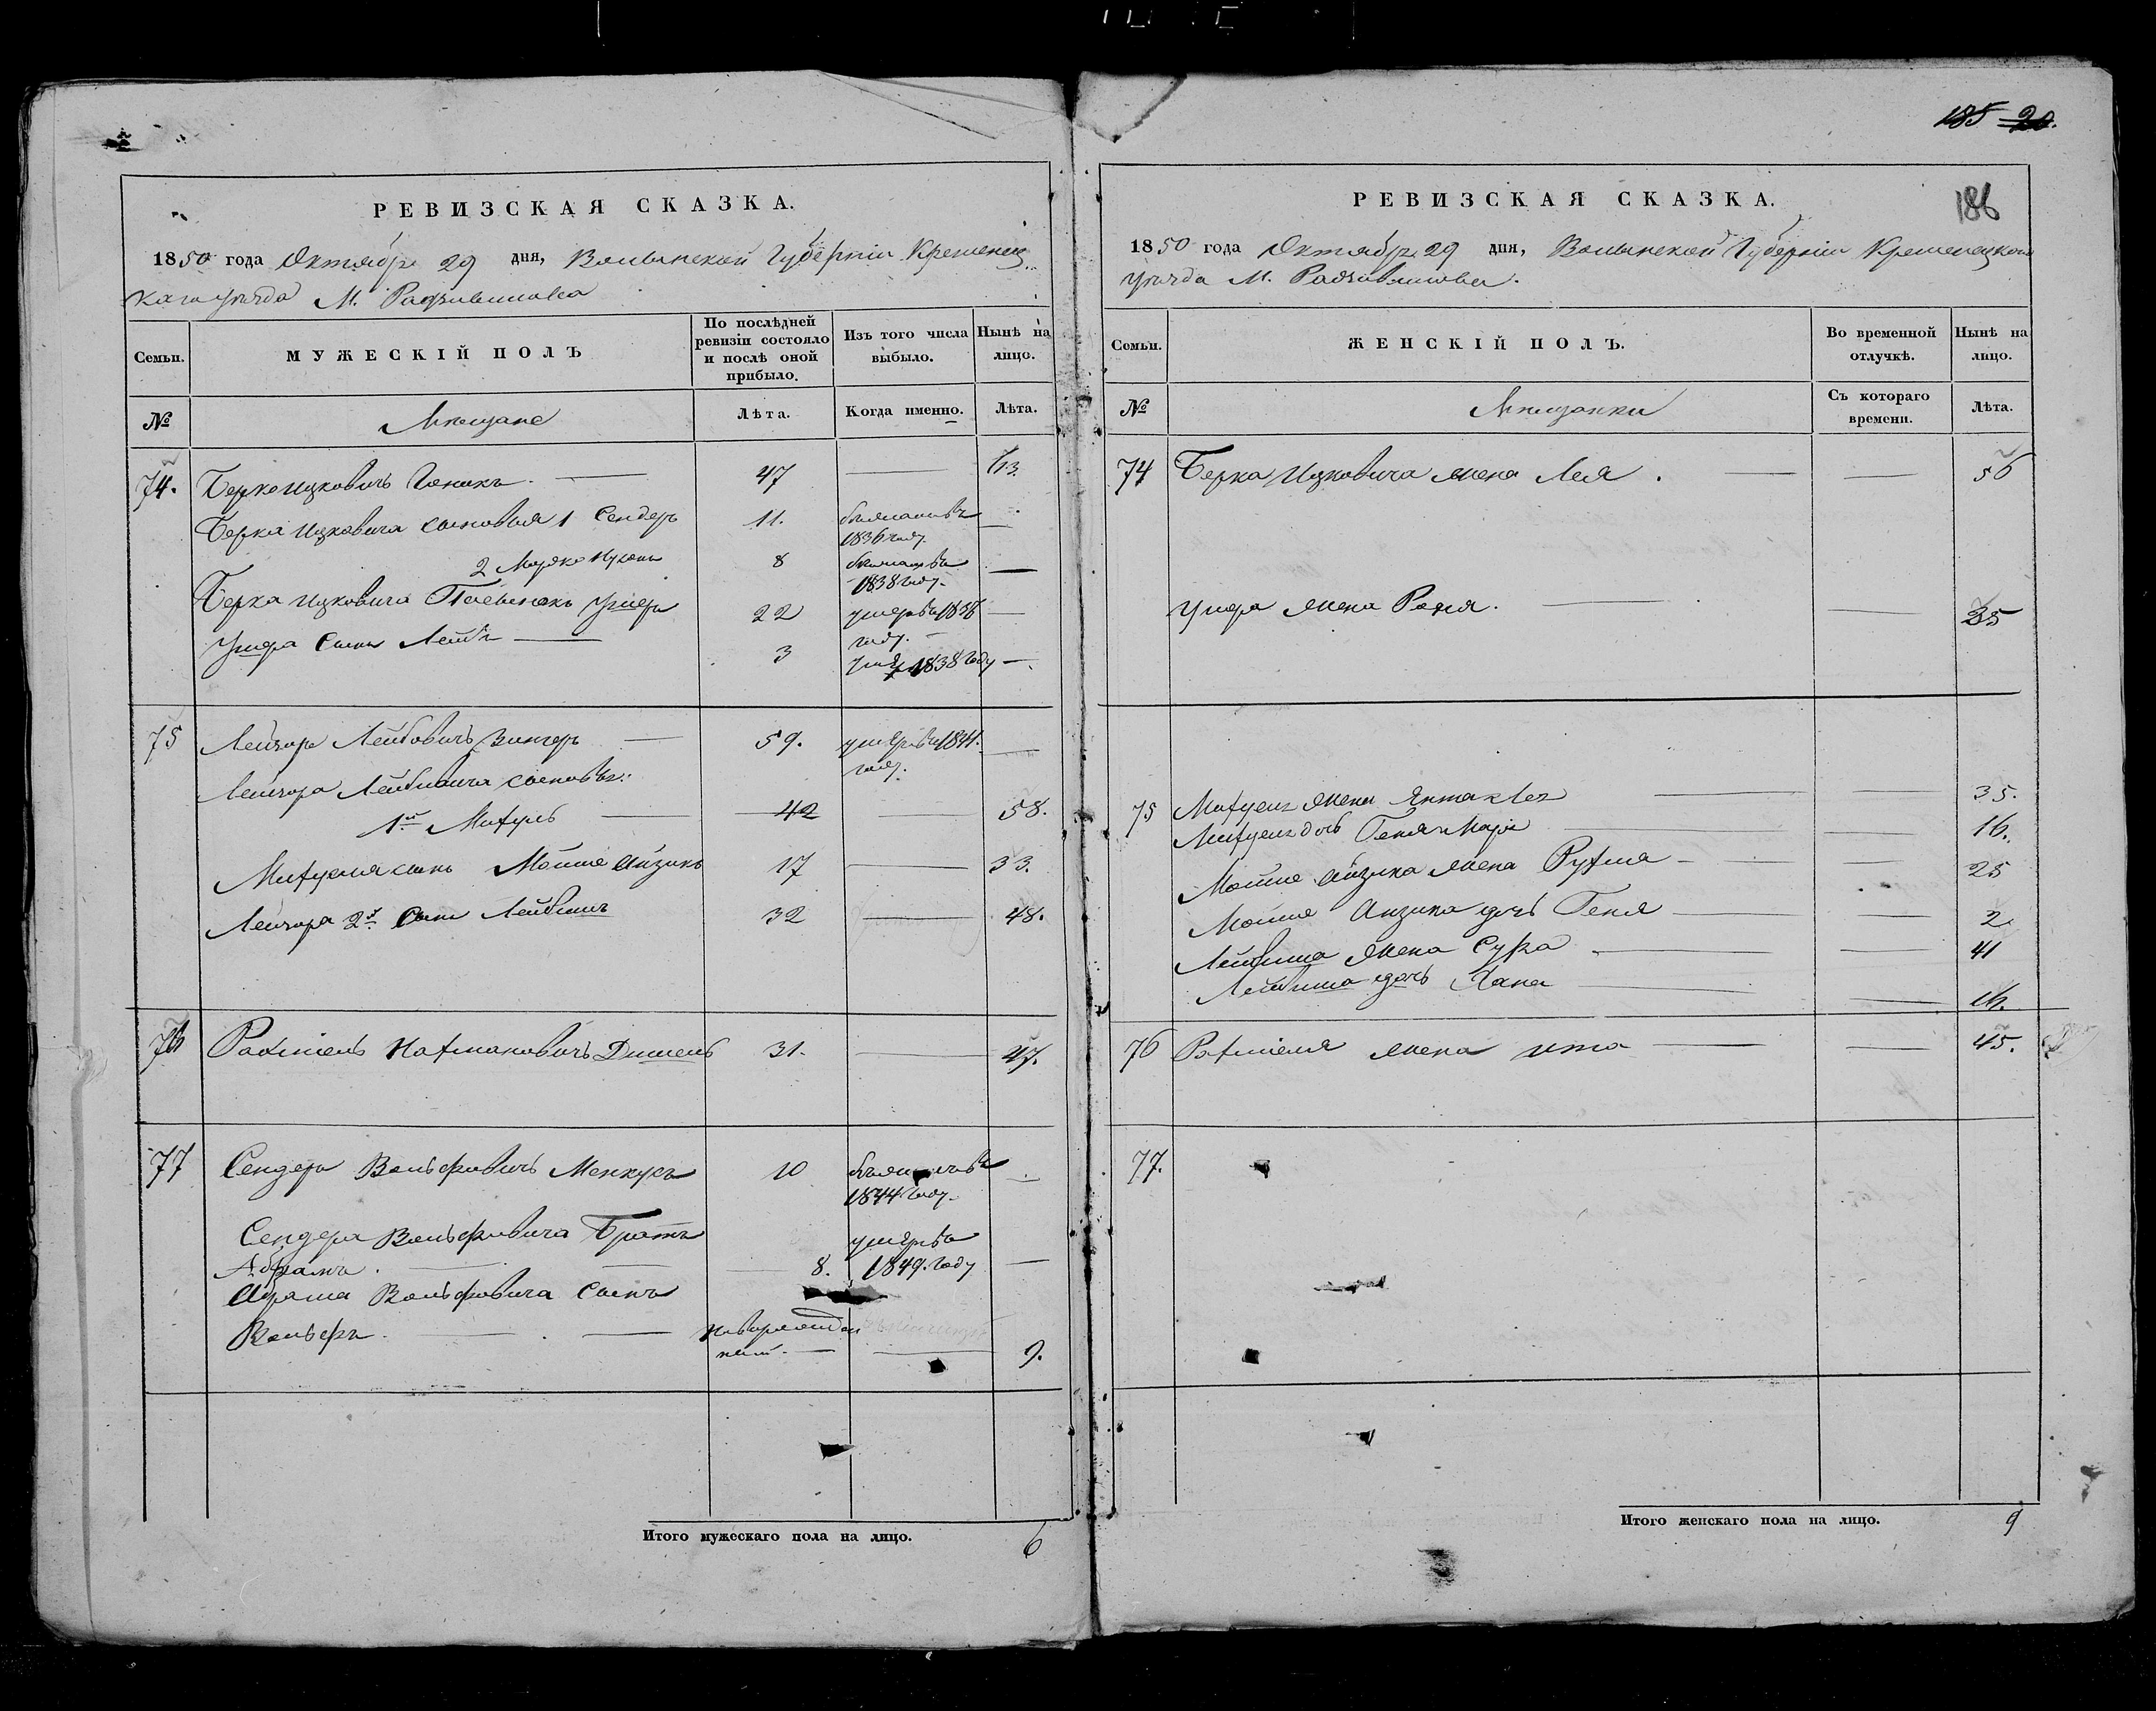 185 20.
186
РЕВИЗСКАЯ СКАЗКА.
1850 года Октября 29 дня, Волынской Губерніи Кременец
каго уѣзда М. Радзивилова
Семьи.
МУЖЕСКІЙ ПОЛЪ
По послѣдней
ревизіи состояло
и послѣ оной
прибыло.
Изъ того числа
выбыло.
Нынѣ на
лицо.
№
Мѣщане
Лѣта.
Когда именно.
Лѣта.
74. Берко Ицковичъ 47 63.
Берка Ицковича сыновья 1 Сендеръ 11.
1836 году.
2 8
1838 году.
Берка Ицковича Ушеръ 22 умеръ въ 1838
году.
Ушера сынъ Лейба 3 1838 году
75 Лейзоръ Лейбовичъ Зингеръ 59. умеръ въ 1841.
году.
Лейзора Лейбовича сыновья:
1й Михуль 42 58.
Михуля сынъ Мошко Айзикъ 17 33.
Лейзора 2й сынъ Лейбишъ 32 48.
76 Рахміель Нахмановичъ Дишель 31. 47.
77 Сендеръ Вольфовичъ 10
1844 году.
Сендера Вольфовича Братъ умеръ въ
Абрамъ. 8. 1849. году
Вольфовича сынъ
Вольфъ. новорожден
ный. 9.
Итого мужескаго пола на лицо. 6
РЕВИЗСКАЯ СКАЗКА.
1850 года Октября 29 дня, Волынской Губерніи Кременецкаго
уѣзда М. Радзивилова.
Семьи.
ЖЕНСКІЙ ПОЛЪ.
Во временной
отлучкѣ.
Нынѣ на
лицо.
№
Мѣщанки
Съ котораго
времени.
Лѣта.
74 Берка Ицковича жена Лея. 56
Ушера жена 35
75 Михуля жена 35.
Михуля дочь 16.
Мошка Айзика жена Рухля 25
Мошка Айзика дочь Геня 2
Лейбиша жена Сура 41
Лейбиша дочь Хана 16.
76 Рахміеля жена Ита 45.
77.
Итого женскаго пола на лицо. 9